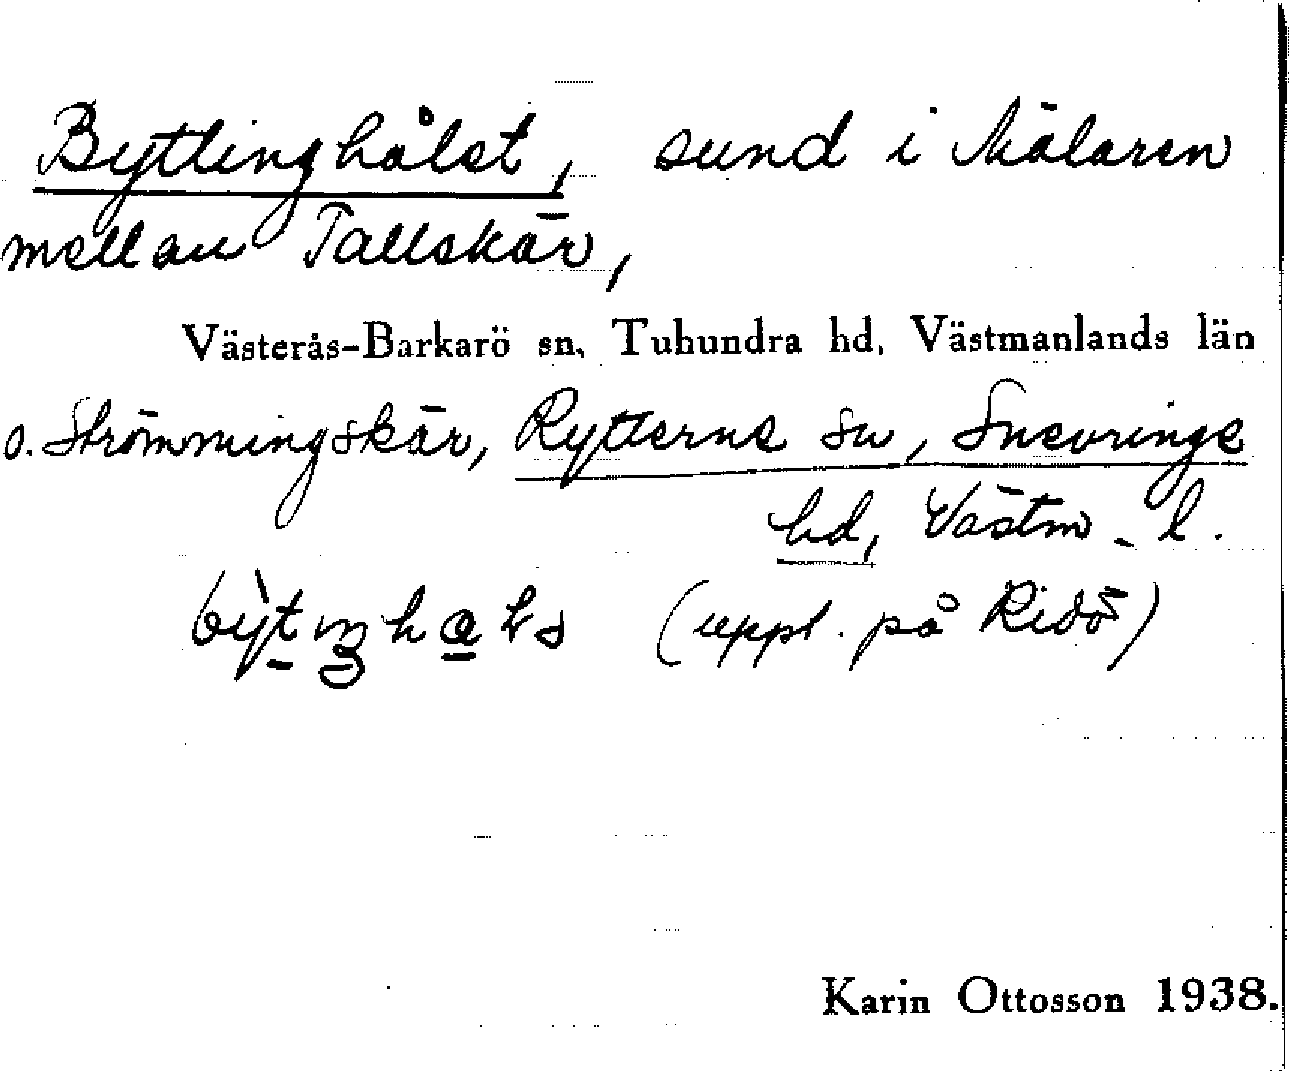 Bytlinghålet, sund i Mälaren
mellan Tallskär,
Västerås-Barkarö sn, Tuhundra hd, Västmanlands län
o. Strömmingskär, Rytterne sn, Snevringe
hd, Västm. l.
(uppt. på Ridö)
Karin Ottosson 1938.